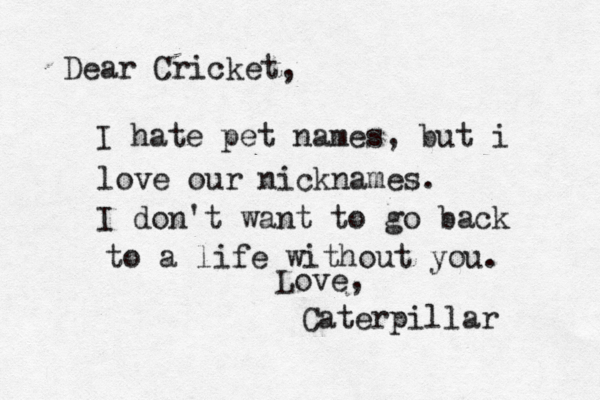 Dear Cricket,
I hate pet names, but i
love our nicknames.
I don't want to go back
to a life without you.
Love,
Caterpillar